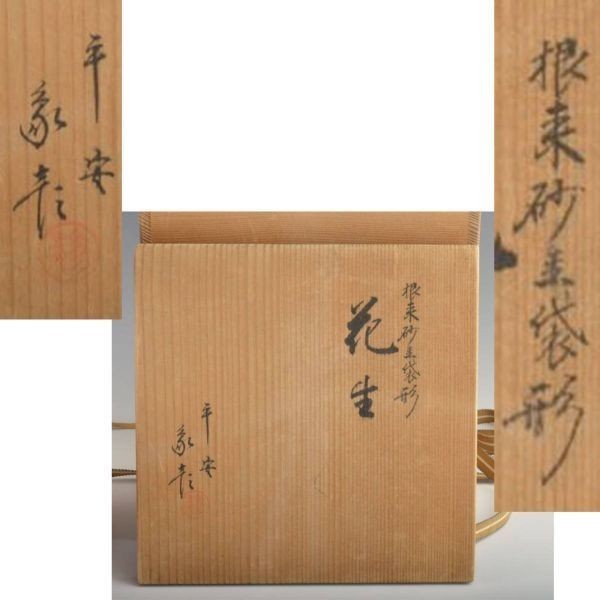 平安
象彦
根来砂金袋形
根来砂金袋形
花生
平安
象彦